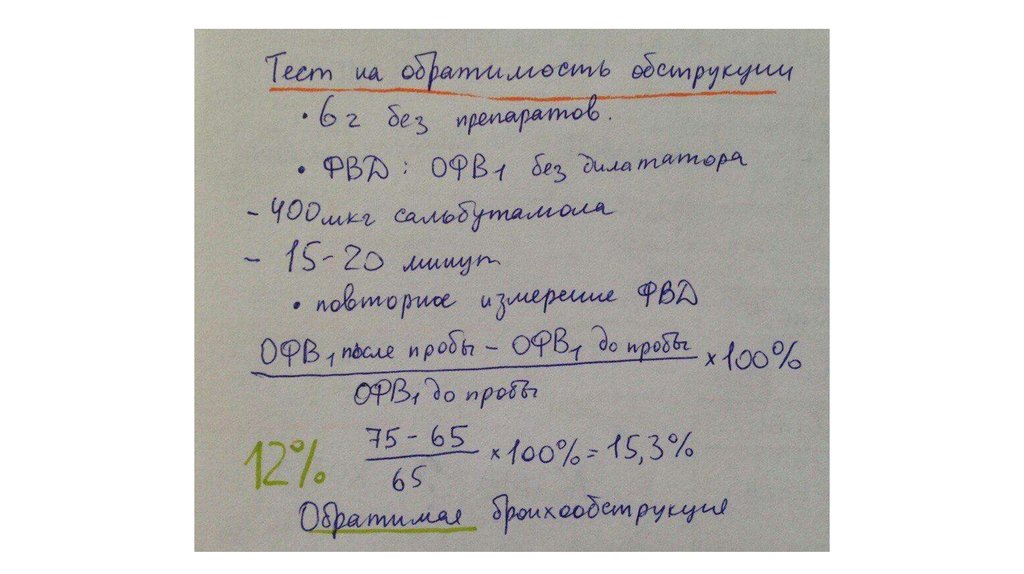 Тест на обратимость обструкции
• 6 г без препаратов.
• ФВД: ОФВ1 без дилататора
- 400 мкг сальбутамола
- 15-20 минут
• повторное измерение ФВД
ОФВ1 после пробы - ОФВ1 до пробы
× 100%
ОФВ1 до пробы
75 - 65
12%
× 100% = 15,3%
65
Обратимая бронхообструкция